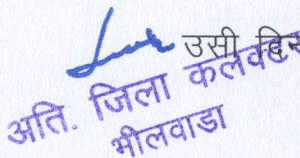 उसी दिन
अति. जिला कलक्टर
भीलवाडा